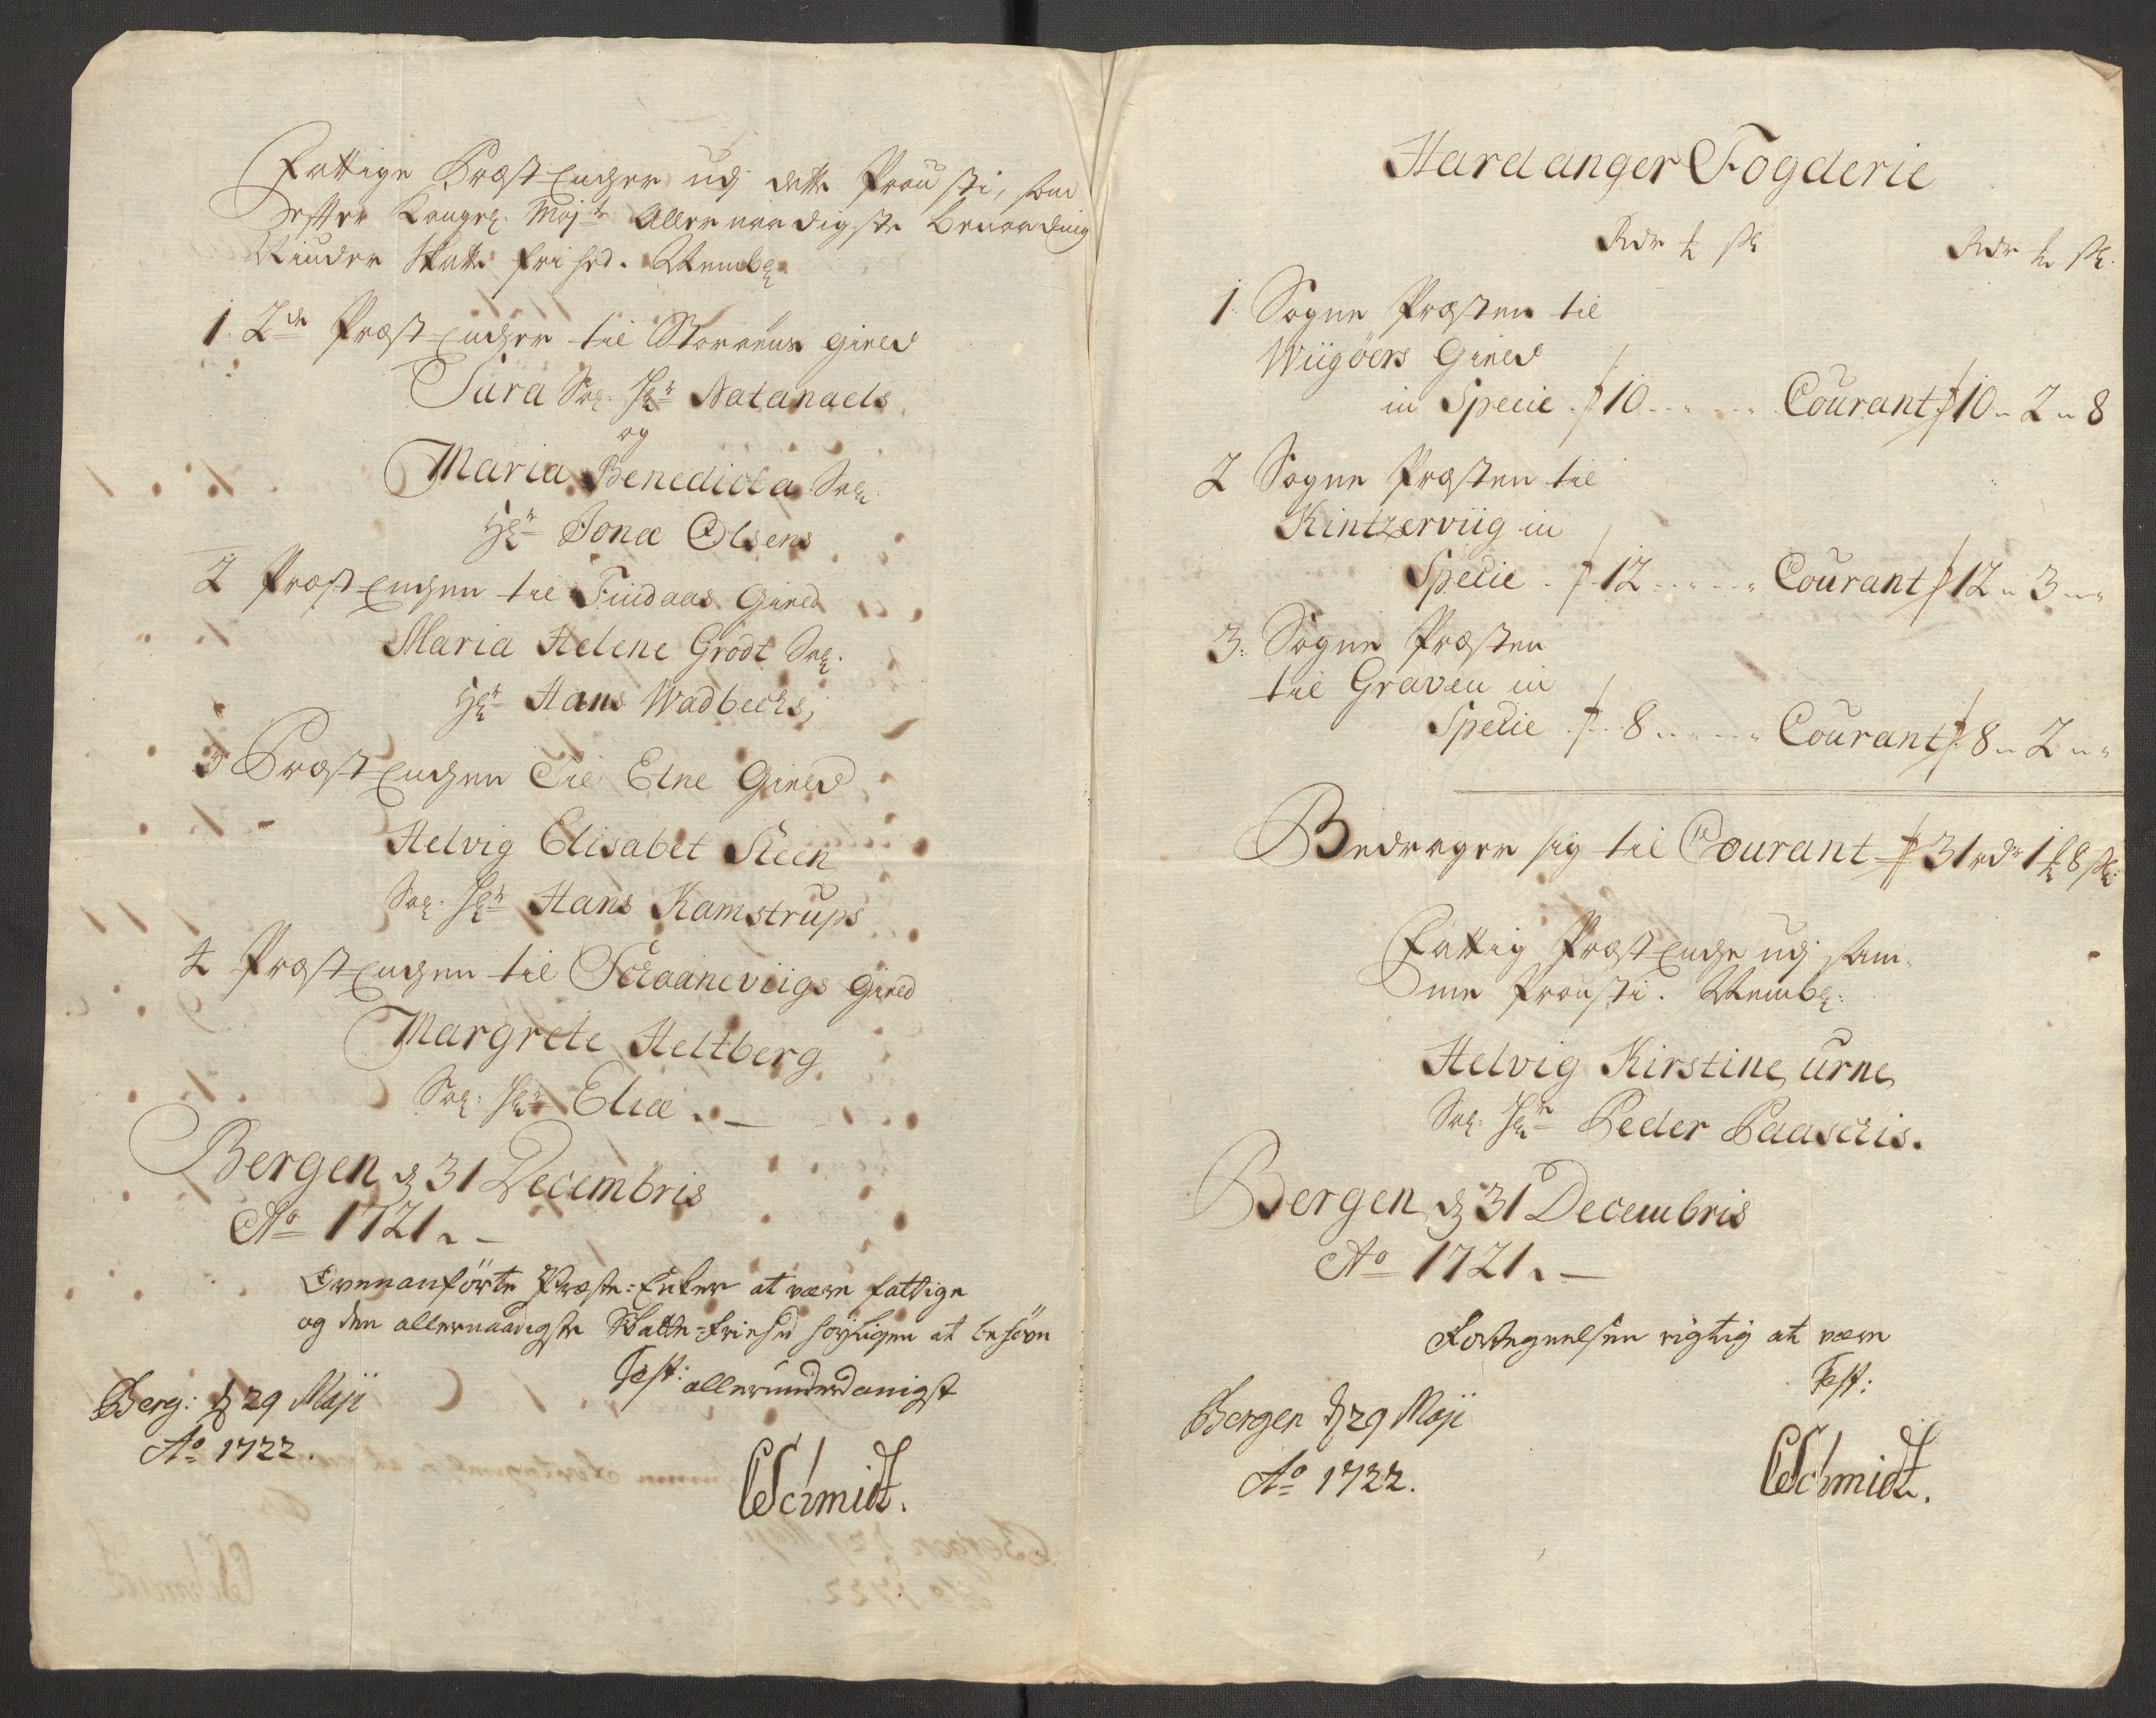 Fattige Præst Encher udj dette Prousti, som
efter Kongel. Maj:ts Allernaadigste benaadning
Niuder Skatte frihed. Nembl.
1. 2de Præst Encher til Storøens gield
Sara Sal. Hr. Natanaels
og
Maria Benedicta Sal.
Hr. Jonæ Olsens
2 Præst Enchen til Findaas Gield
Maria Helene Grodt Sal.
Hr. Hans Wadbechs,
3 Præst Enchen Til Etne Gield
Helvig Elisabet Steen
Sal. Hr. Hans Kamstrups
4 Præst Enchen til Schaaneviigs Gield
Margrete Heltberg
Sal: Hr. Eliæ. –
Bergen d 31 Decembris
Ao 1721. –
Ovenanførte Præste-Enker at være fattige
og den allernaadigste Skatte-friehed høyligen at behøve
Test: allerunderdanigst
Berg: d 29 Maji
Ao 1722.
CSchmidt.
Hardanger Fogderie
Rdr ℔ sk Rdr ℔ sk.
1. Sogne Præsten til
Wiigöers Gield
in Specie . 10 . . . . Courant 10 „ 2 „ 8
2 Sogne Præsten til
Kintzerviig in
Specie . 12 . . . . Courant 12 „ 3 „ „
3. Sogne Præsten
til Graven in
Specie . 8 . . . . Courant 8 „ 2 „ „
Bedrager sig til Courant 31 rdr 1 ℔ 8 sk:
Fattig Præst Enche udj sam-
me Prousti. Nembl:
Helvig Kirstine Urne
Sal: Hr. Peder Paaschis.
Bergen d 31 Decembris
Ao 1721. –
Fortegnelsen rigtig at være
Test:
Bergen d 29 Maji
Ao 1722.
CSchmidt.